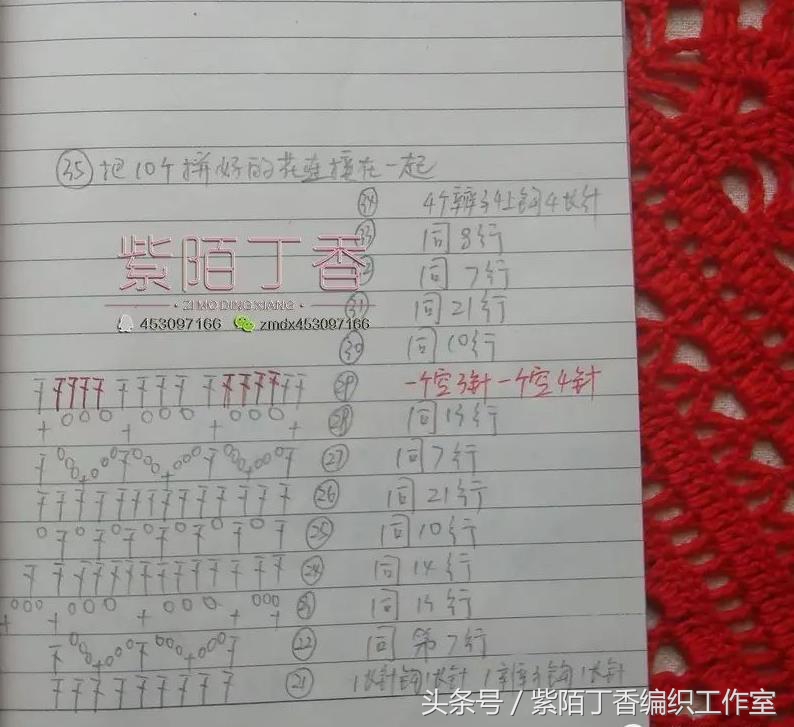 ㉟ 把10个拼好的花连接在一起
㉞ 4个辫子上钩4长针
33 同8行
32 同7行
紫陌丁香
· ZI MO DING XIANG ·
453097166 zmdx453097166
㉛ 同21行
㉚ 同10行
㉙ 一个空3针一个空4针
㉘ 同13行
㉗ 同7行
㉖ 同21行
㉕ 同10行
㉔ 同14行
㉓ 同13行
㉒ 同第7行
㉑ 1长针钩1长针 1辫子钩1长针
头条号 / 紫陌丁香编织工作室